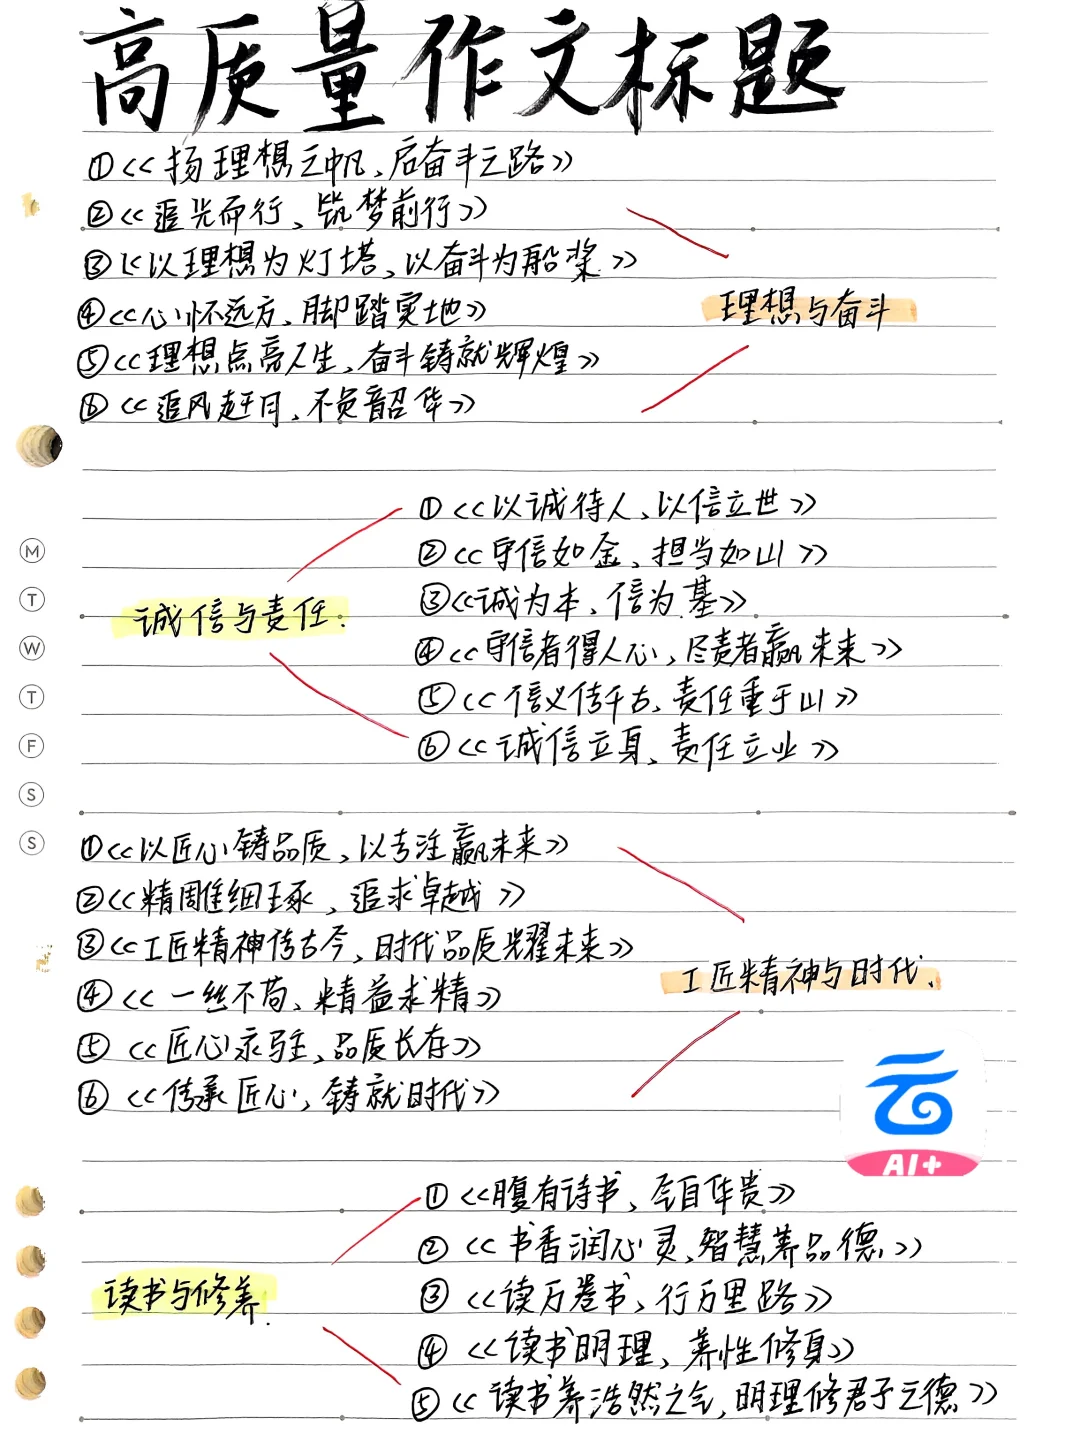 高质量作文标题
①<<扬理想之帆、启奋斗之路>>
②<<追光而行、筑梦前行>>
③<<以理想为灯塔、以奋斗为船桨>>
④<<心怀远方、脚踏实地>>
⑤<<理想点亮人生、奋斗铸就辉煌>>
⑥<<追风赶月、不负韶华>>
理想与奋斗
①<<以诚待人、以信立世>>
②<<守信如金、担当如山>>
③<<诚为本、信为基>>
诚信与责任.
④<<守信者得人心，尽责者赢未来>>
⑤<<信义传千古、责任重于山>>
⑥<<诚信立身、责任立业>>
①<<以匠心铸品质、以专注赢未来>>
②<<精雕细琢，追求卓越>>
③<<工匠精神传古今，时代品质耀未来>>
工匠精神与时代.
④<<一丝不苟、精益求精>>
⑤<<匠心永驻、品质长存>>
⑥<<传承匠心，铸就时代>>
云
AI+
①<<腹有诗书、气自华贵>>
②<<书香润心灵、智慧养品德>>
读书与修养.
③<<读万卷书，行万里路>>
④<<读书明理，养性修身>>
⑤<<读书养浩然之气，明理修君子之德>>
M
T
W
T
F
S
S